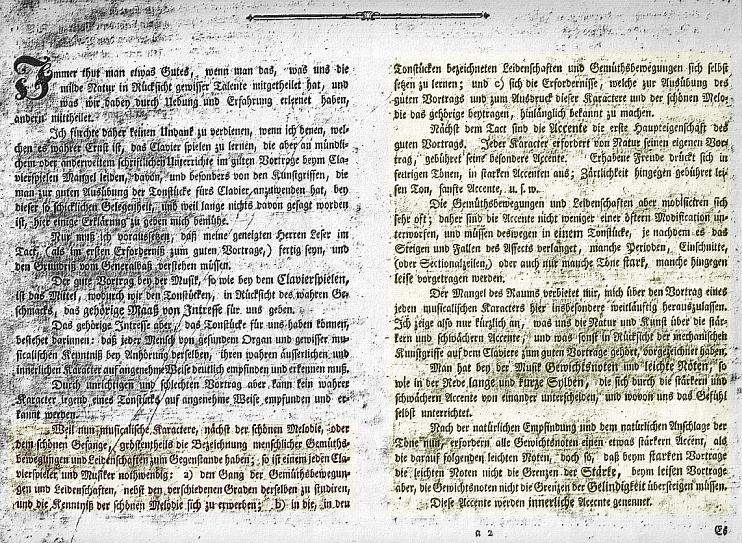 Immer thut man etwas Gutes, wenn man das, was uns die
milde Natur in Rücksicht gewisser Talente mitgetheilet hat, und
was wir daben durch Uebung und Erfahrung erlernet haben,
andern mittheilet.
Ich fürchte daher keinen Undank zu verdienen, wenn ich denen, wel-
chen es wahrer Ernst ist, das Clavier spielen zu lernen, die aber an münbli-
chem oder anderweitem schriftlichen Unterrichte im guten Vortrage beym Cla-
vierspielen Mangel leiden, davon, und besonders von den Kunstgriffen, die
man zur guten Ausübung der Tonstücke fürs Clavier anzuwenden hat, bey
dieser so schicklichen Gelegenheit, und weil lange nichts davon gesagt worden
ist, hier einige Erklärung zu geben mich bemühe.
Nur muß ich voraussetzen, daß meine geneigten Herren Leser im
Tact, (als im ersten Erforderniß zum guten Vortrage,) fertig seyn, und
den Grundriß vom Generalbaß verstehen müssen.
Der gute Vortrag bey der Musik, so wie bey dem Clavierspielen,
ist das Mittel, wodurch wir den Tonstücken, in Rücksicht des wahren Ge-
schmacks, das gehörige Maaß von Intresse für uns geben.
Das gehörige Intresse aber, das Tonstücke für uns haben können,
bestehet darinnen: daß jeder Mensch von gesundem Organ und gewisser mu-
sicalischen Kenntniß bey Anhörung derselben, ihren wahren äusserlichen und
innerlichen Karacter auf angenehme Weise deutlich empfinden und erkennen muß.
Durch unrichtigen und schlechten Vortrag aber kann kein wahrer
Karacter irgend eines Tonstücks auf angenehme Weise empfunden und er-
kannt werden.
Weil nun musicalische Karactere, nächst der schönen Melodie, oder
dem schönen Gesange, größtentheils die Bezeichnung menschlicher Gemüths-
bewegungen und Leidenschaften zum Gegenstande haben; so ist einem jeden Cla-
vierspieler und Musiker nothwendig: a) den Gang der Gemüthsbewegun-
gen und Leidenschaften, nebst den verschiedenen Graden derselben zu studiren,
und die Kenntniß der schönen Melodie sich zu erwerben; b) in die, in den
Tonstücken bezeichneten Leidenschaften und Gemüthsbewegungen sich selbst
setzen zu lernen; und c) sich die Erfordernisse, welche zur Ausübung des
guten Vortrags und zum Ausdruck dieser Karactere und der schönen Melo-
die das gehörige beytragen, hinlänglich bekannt zu machen.
Nächst dem Tact sind die Accente die erste Haupteigenschaft des
guten Vortrags. Jeder Karacter erfordert von Natur seinen eigenen Vor-
trag, gebühret seine besondere Accente. Erhabene Freude drückt sich in
feurigen Tönen, in starken Accenten aus; Zärtlichkeit hingegen gebühret lei-
sen Ton, sanfte Accente, u. s. w.
Die Gemüthsbewegungen und Leidenschaften aber modificiren sich
sehr oft; daher sind die Accente nicht weniger einer öftern Modification un-
terworfen, und müssen deswegen in einem Tonstücke, je nachdem es das
Steigen und Fallen des Affects verlanget, manche Perioden, Einschnitte,
(oder Sectionalzeilen,) oder auch nur manche Töne stark, manche hingegen
leise vorgetragen werden.
Der Mangel des Raums verbietet mir, mich über den Vortrag eines
jeden musicalischen Karacters hier insbesondere weitläuftig herauszulassen.
Ich zeige also nur kürzlich an, was uns die Natur und Kunst über die stär-
kern und schwächern Accente, und was sonst in Rücksicht der mechanischen
Kunstgriffe auf dem Claviere zum guten Vortrage gehört, vorgezeichnet haben.
Man hat bey der Musik Gewichtsnoten und leichte Noten, so
wie in der Rede lange und kurze Sylben, die sich durch die stärkern und
schwächern Accente von einander unterscheiden, und wovon uns das Gefühl
selbst unterrichtet.
Nach der natürlichen Empfindung und dem natürlichen Anschlage der
Töne nun, erfordern alle Gewichtsnoten einen etwas stärkern Accent, als
die darauf folgenden leichten Noten, doch so, daß beym starken Vortrage
die leichten Noten nicht die Grenzen der Stärke, beym leisen Vortrage
aber, die Gewichtsnoten nicht die Grenzen der Gelindigkeit übersteigen müssen.
Diese Accente werden innerliche Accente genennet.
a 2
Es